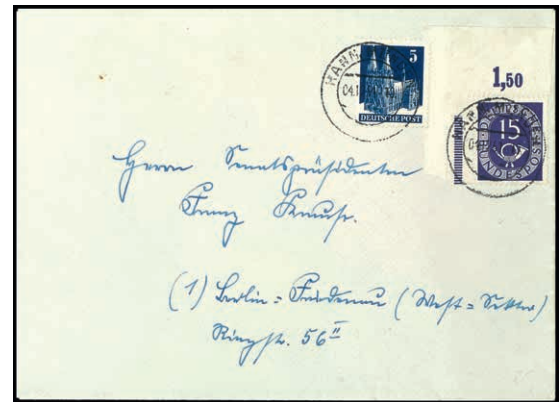 5
DEUTSCHE POST
MANN
04.1
1,50
15
DEUTSCHE
BUNDESPOST
Herrn Senatspräsidenten
Franz
(1) Berlin = Friedenau (West = Sektor)
Ringstr. 56 II